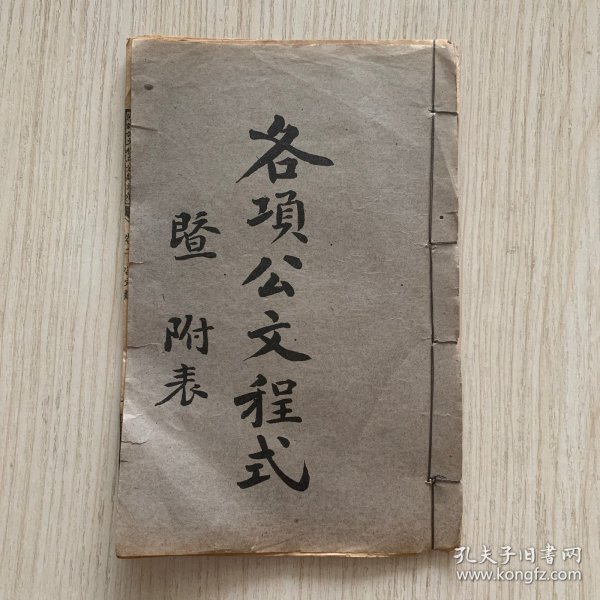 各項公文程式
暨 附表
孔夫子旧書网
www.kongfz.com